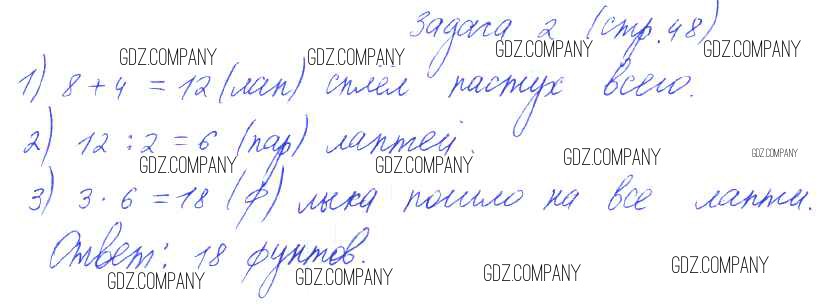 Задача 2 (стр. 48)
GDZ.COMPANY GDZ.COMPANY GDZ.COMPANY GDZ.COMPANY
1) 8 + 4 = 12 (лап) сплёл пастух всего.
2) 12 : 2 = 6 (пар) лаптей.
GDZ.COMPANY GDZ.COMPANY GDZ.COMPANY GDZ.COMPANY
3) 3 · 6 = 18 (ф) лыка пошло на все лапти.
Ответ: 18 фунтов.
GDZ.COMPANY GDZ.COMPANY GDZ.COMPANY GDZ.COMPANY